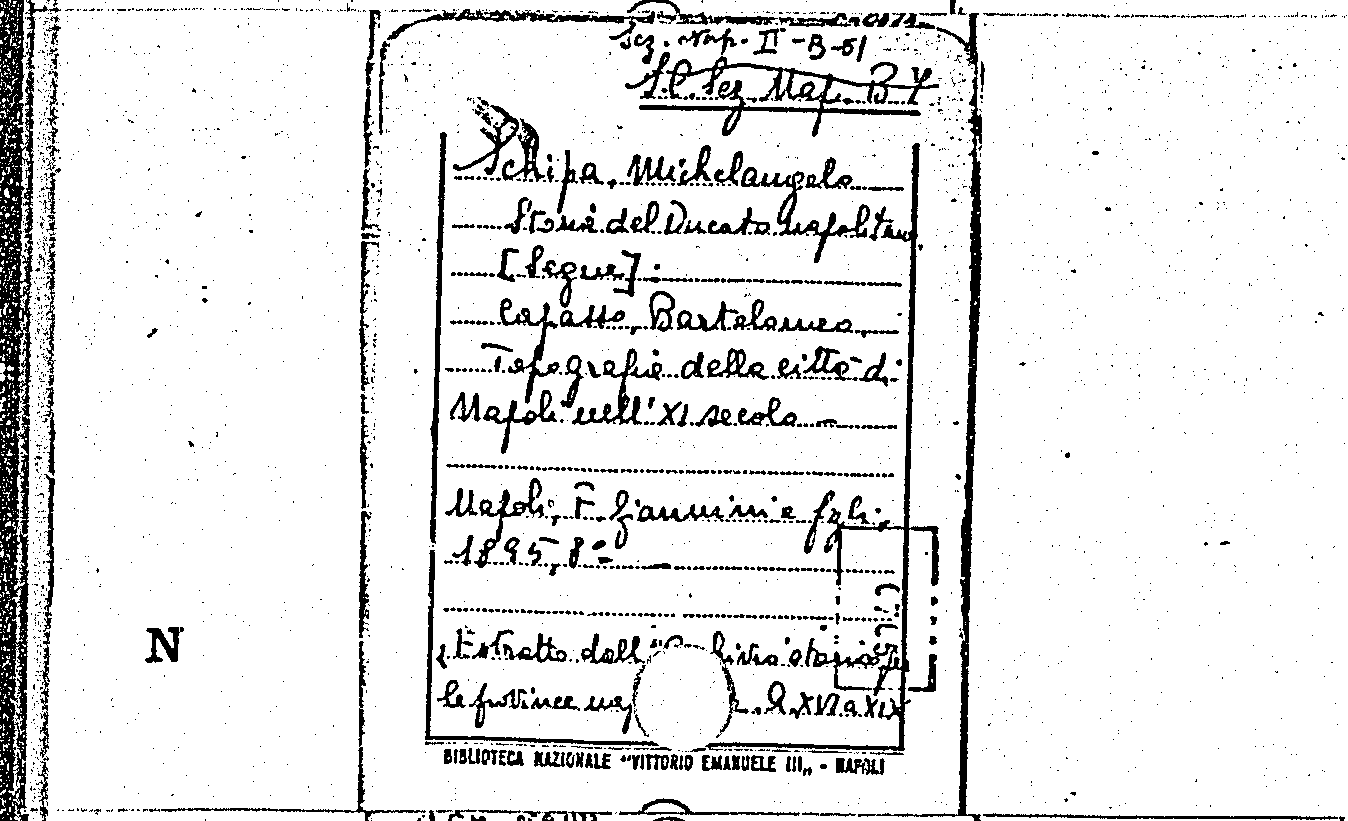 Sez. Nap. II-B-51
S.C. Sez Nap. B 4
Schipa, Michelangelo
Storia del Ducato napolitano
[Segue]:
Capasso, Bartolomeo,
Topografia della città di
Napoli nell'XI secolo –
Napoli, F. Giannini e figli,
1895, 8° –
N
(Estratto dall'" hivio storico
le province nap . A. XVI a XIX
BIBLIOTECA NAZIONALE "VITTORIO EMANUELE III„ - NAPOLI